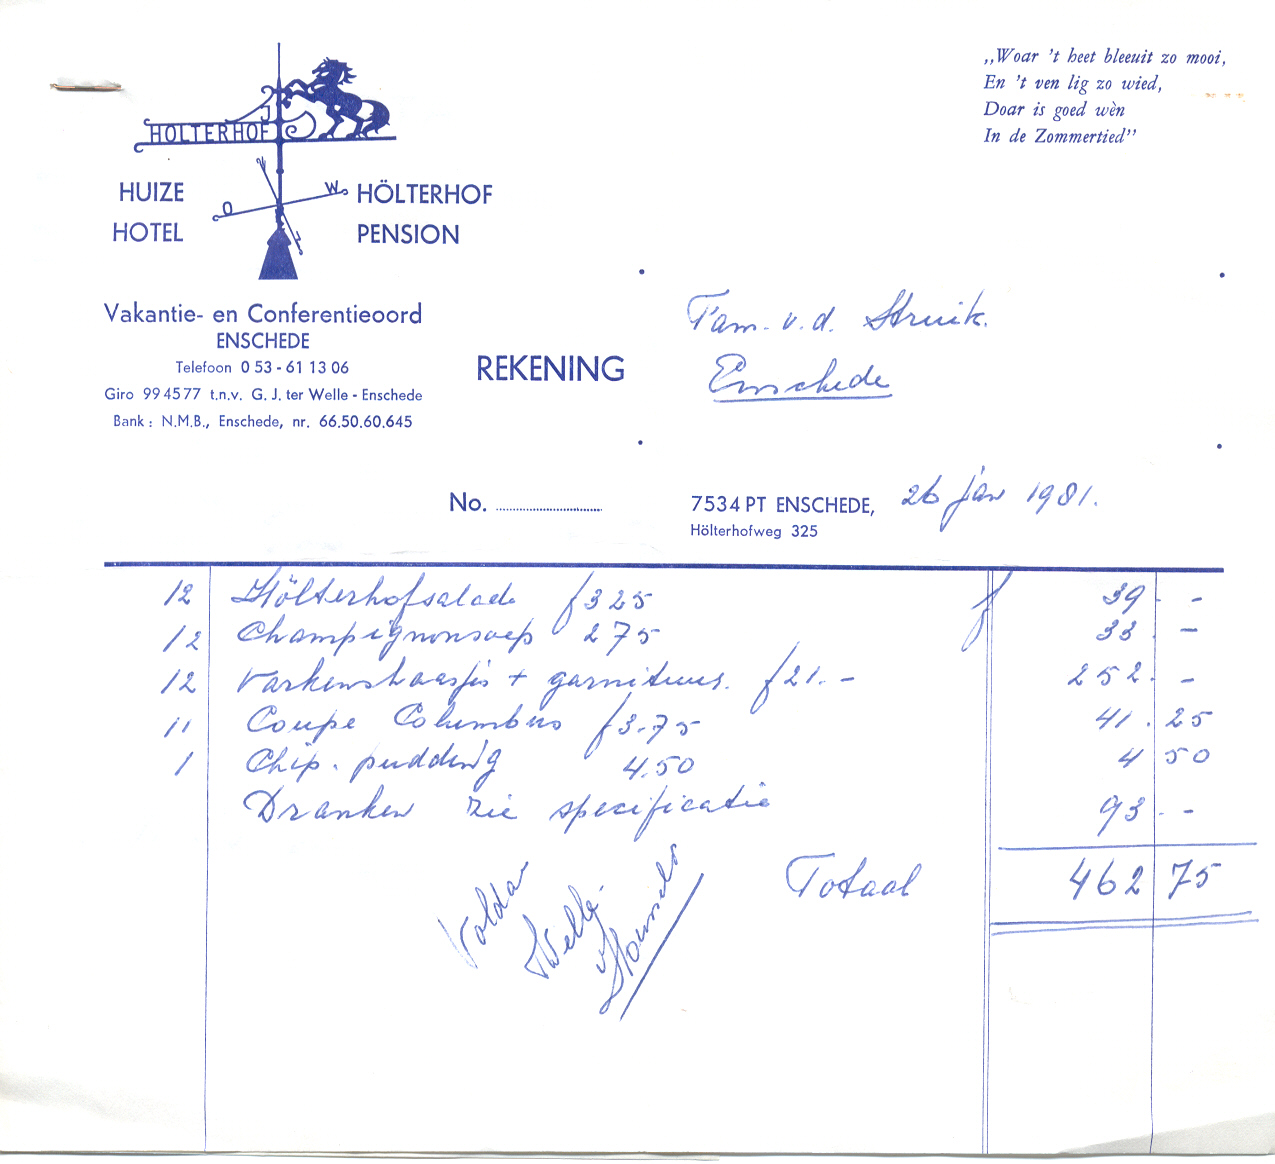 „Woar 't heet bleeuit zo mooi,
En 't ven lig zo wied,
Doar is goed wèn
In de Zommertied”
HOLTERHOF
HUIZE HÖLTERHOF
O W
HOTEL PENSION
Z
Vakantie- en Conferentieoord
ENSCHEDE
Telefoon 0 53 - 61 13 06
Giro 99 45 77 t.n.v. G. J. ter Welle - Enschede
Bank: N.M.B., Enschede, nr. 66.50.60.645
REKENING
Fam. v.d. Struik.
Enschede
No.
7534 PT ENSCHEDE, 26 jan 1981.
Hölterhofweg 325
12 Hölterhofsalade f 325 f 39 . -
12 Champignonsoep 275 33 . -
12 Varkenshaasjes + garnituur. f 21.- 252 . -
11 Coupe Columbus f 3.75 41 . 25
1 Chip. pudding 4.50 4 50
Dranken zie specificatie 93 . -
Totaal 462 75
Voldaan
Welle